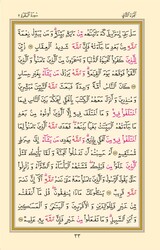 سَلْ بَنِي إِسْرَائِيلَ كَمْ آتَيْنَاهُمْ مِنْ آيَةٍ بَيِّنَةٍ وَمَنْ يُبَدِّلْ نِعْمَةَ
اللَّهِ مِنْ بَعْدِ مَا جَاءَتْهُ فَإِنَّ اللَّهَ شَدِيدُ الْعِقَابِ زُيِّنَ لِلَّذِينَ
كَفَرُوا الْحَيَاةُ الدُّنْيَا وَيَسْخَرُونَ مِنَ الَّذِينَ آمَنُوا وَالَّذِينَ
اتَّقَوْا فَوْقَهُمْ يَوْمَ الْقِيَامَةِ وَاللَّهُ يَرْزُقُ مَنْ يَشَاءُ بِغَيْرِ حِسَابٍ
كَانَ النَّاسُ أُمَّةً وَاحِدَةً فَبَعَثَ اللَّهُ النَّبِيِّينَ مُبَشِّرِينَ
وَمُنْذِرِينَ وَأَنْزَلَ مَعَهُمُ الْكِتَابَ بِالْحَقِّ لِيَحْكُمَ بَيْنَ النَّاسِ فِيمَا
اخْتَلَفُوا فِيهِ وَمَا اخْتَلَفَ فِيهِ إِلَّا الَّذِينَ أُوتُوهُ مِنْ بَعْدِ
مَا جَاءَتْهُمُ الْبَيِّنَاتُ بَغْيًا بَيْنَهُمْ فَهَدَى اللَّهُ الَّذِينَ آمَنُوا لِمَا
اخْتَلَفُوا فِيهِ مِنَ الْحَقِّ بِإِذْنِهِ وَاللَّهُ يَهْدِي مَنْ يَشَاءُ إِلَى صِرَاطٍ
مُسْتَقِيمٍ أَمْ حَسِبْتُمْ أَنْ تَدْخُلُوا الْجَنَّةَ وَلَمَّا يَأْتِكُمْ مَثَلُ
الَّذِينَ خَلَوْا مِنْ قَبْلِكُمْ مَسَّتْهُمُ الْبَأْسَاءُ وَالضَّرَّاءُ وَزُلْزِلُوا
حَتَّى يَقُولَ الرَّسُولُ وَالَّذِينَ آمَنُوا مَعَهُ مَتَى نَصْرُ اللَّهِ أَلَا إِنَّ نَصْرَ
اللَّهِ قَرِيبٌ يَسْأَلُونَكَ مَاذَا يُنْفِقُونَ قُلْ مَا أَنْفَقْتُمْ
مِنْ خَيْرٍ فَلِلْوَالِدَيْنِ وَالْأَقْرَبِينَ وَالْيَتَامَى وَالْمَسَاكِينِ
وَابْنِ السَّبِيلِ وَمَا تَفْعَلُوا مِنْ خَيْرٍ فَإِنَّ اللَّهَ بِهِ عَلِيمٌ
٣٣